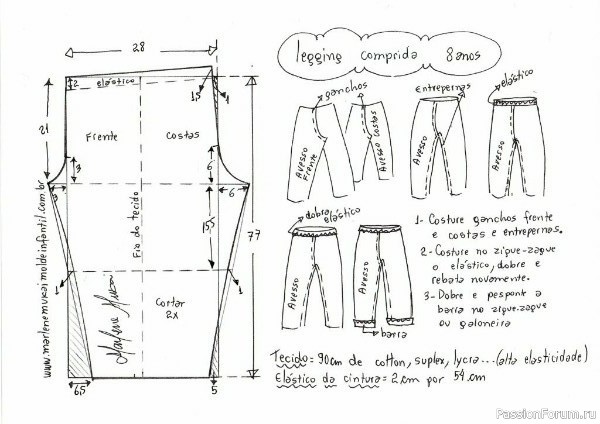 28
legging comprida 8 anos
2 elástico
1,5
1
21
Frente
Costas
3
6
3
6
www.marlenemukai.moldeinfantil.com.br
Fio do tecido
15,5
77
1
1
Marlene Mukai
Cortar
2x
6,5
5
ganchos
Avesso
Frente
Avesso Costas
Entrepernas
Avesso
elástico
Avesso
dobra
elástico
Avesso
Avesso
barra
1- Costure ganchos frente
e costas e entrepernas.
2- Costure no zigue-zague
o elástico, dobre e
rebata novamente.
3- Dobre e pesponte a
barra no zigue-zague
ou galoneira
Tecido = 90cm de cotton, suplex, lycra...(alta elasticidade)
Elástico da cintura = 2cm por 54cm
PassionForum.ru